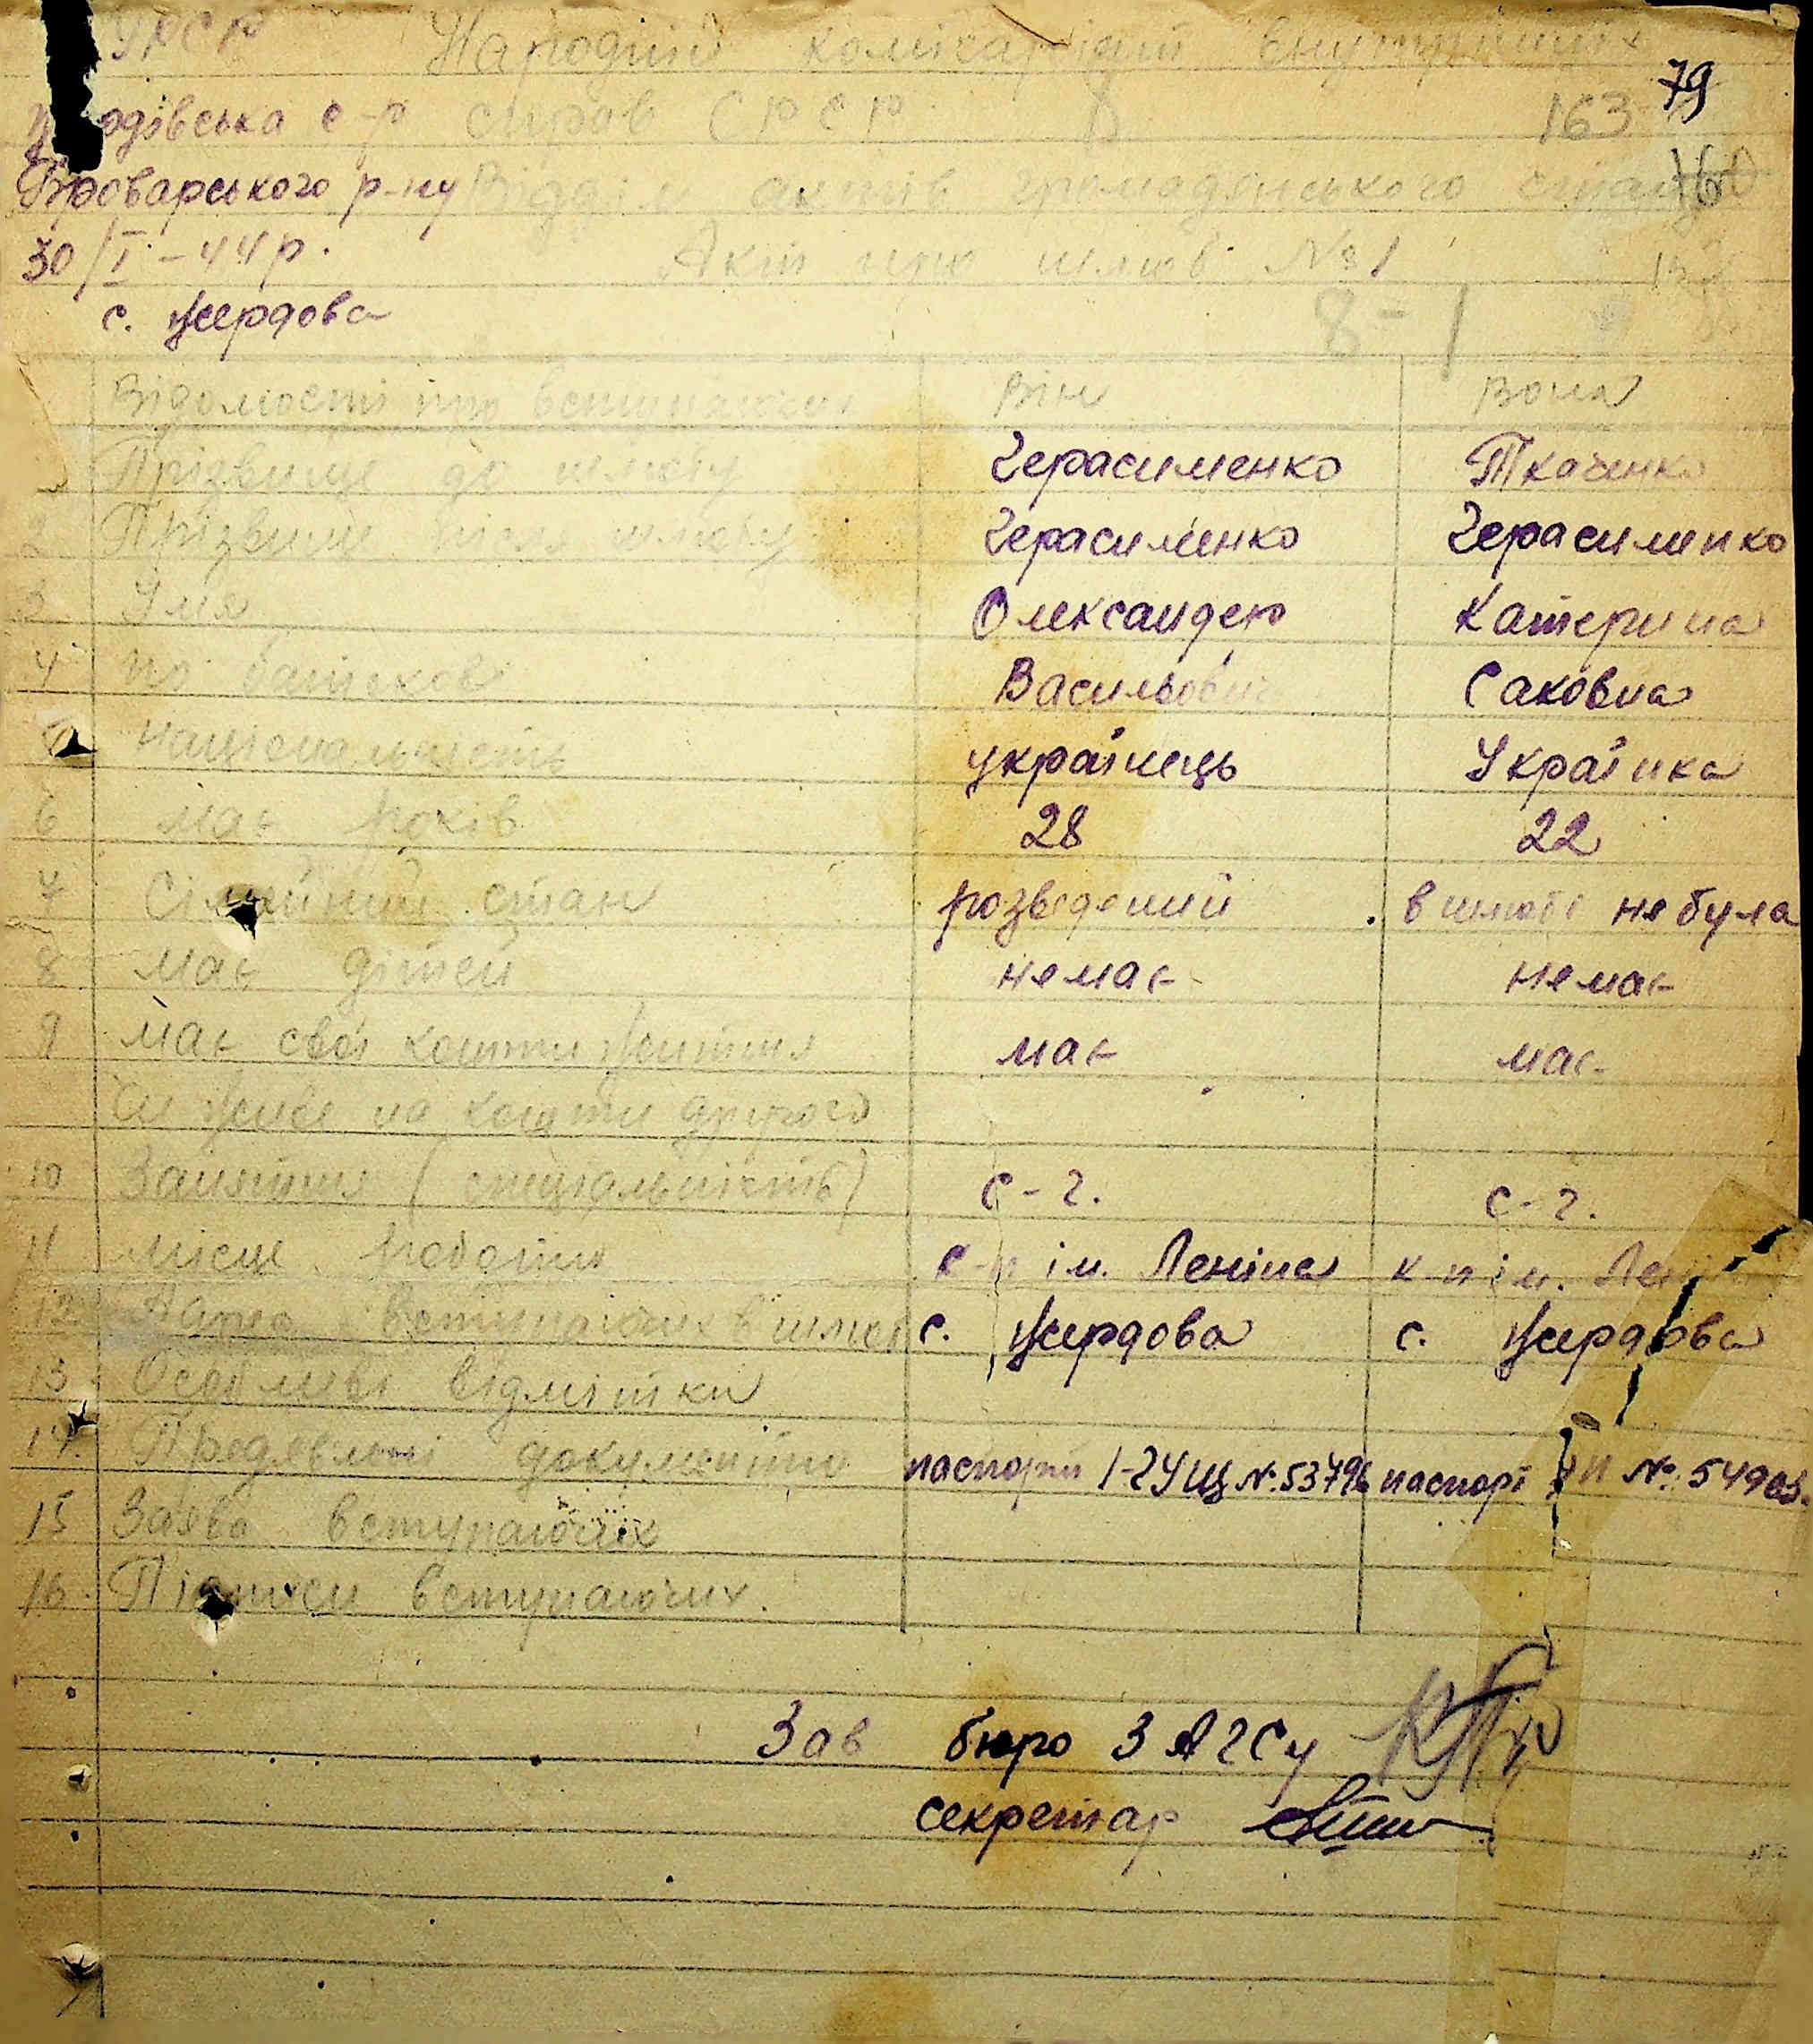 УРСР Народній комісаріят внутрішніх
справ СРСР
163 79
Броварського р-ну Відділ актів громадянського стану
30/I-44р.
Акт про шлюб №1
с. Жердова
8-1
Відомості про вступаючих Він Вона
Прізвище до шлюбу Герасименко Ткаченко
2 Прізвище після шлюбу Герасименко Герасименко
3 Імя Олександер Катерина
4 по батькові Васильович Саковна
Національність українець Українка
6 має років 28 22
7 Сімейний стан розведений в шлюбі не була
8 має дітей немає немає
9 має свої кошти життя має має
чи живе на кошти другого
10 Заняття (спеціальність) с-г. с-г.
11 місце роботи к-п ім. Леніна к-п ім. Леніна
12 Адреса вступаючих в шлюб с. Жердова с. Жердова
13 Особливі відмітки
14. Предявлені документи паспорт І-2УЩ №53796 паспорт №54903.
15 Заява вступаючих
16. Підписи вступаючих.
Зав бюро ЗАГСу
секретар